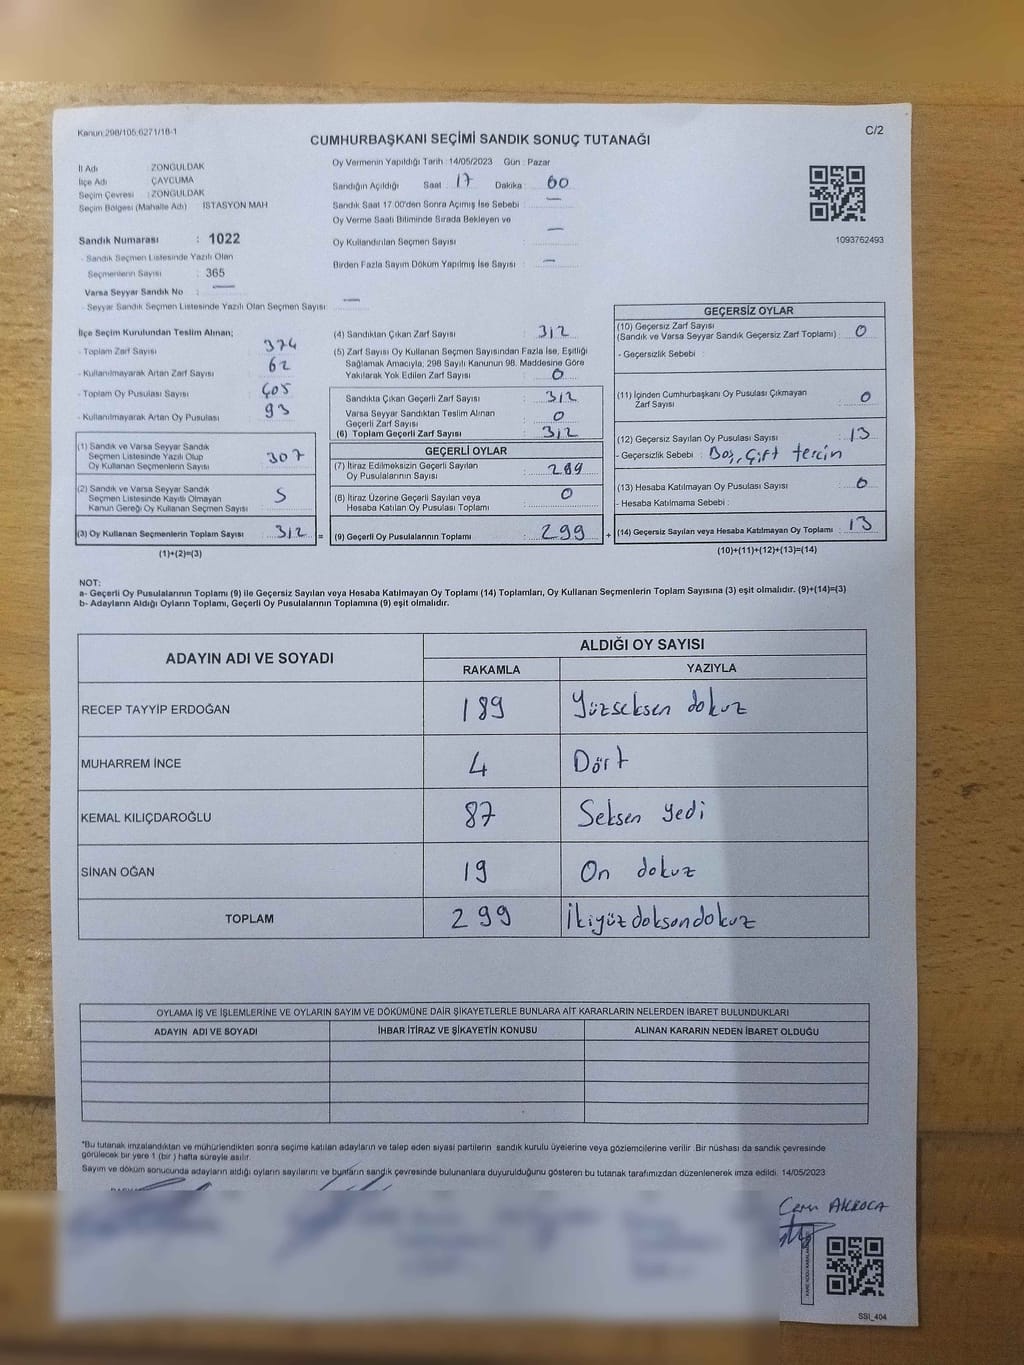 Kanun:298/105,6271/16-1
C/2
CUMHURBAŞKANI SEÇİMİ SANDIK SONUÇ TUTANAĞI
İl Adı : ZONGULDAK
İlçe Adı : ÇAYCUMA
Seçim Çevresi : ZONGULDAK
Seçim Bölgesi (Mahalle Adı) : İSTASYON MAH
Sandık Numarası : 1022
- Sandık Seçmen Listesinde Yazılı Olan
Seçmenlerin Sayısı : 365
Varsa Seyyar Sandık No : —
- Seyyar Sandık Seçmen Listesinde Yazılı Olan Seçmen Sayısı : —
Oy Vermenin Yapıldığı Tarih : 14/05/2023 Gün : Pazar
Sandığın Açıldığı Saat : 17 Dakika : 00
Sandık Saat 17.00'den Sonra Açımış İse Sebebi : —
Oy Verme Saati Bitiminde Sırada Bekleyen ve
Oy Kullandırılan Seçmen Sayısı : —
Birden Fazla Sayım Döküm Yapılmış İse Sayısı : —
1093762493
İlçe Seçim Kurulundan Teslim Alınan;
- Toplam Zarf Sayısı : 374
- Kullanılmayarak Artan Zarf Sayısı : 62
- Toplam Oy Pusulası Sayısı : 405
- Kullanılmayarak Artan Oy Pusulası : 93
(1) Sandık ve Varsa Seyyar Sandık
Seçmen Listesinde Yazılı Olup
Oy Kullanan Seçmenlerin Sayısı : 307
(2) Sandık ve Varsa Seyyar Sandık
Seçmen Listesinde Kayıtlı Olmayan
Kanun Gereği Oy Kullanan Seçmen Sayısı : 5
(3) Oy Kullanan Seçmenlerin Toplam Sayısı : 312 =
(1)+(2)=(3)
(4) Sandıktan Çıkan Zarf Sayısı : 312
(5) Zarf Sayısı Oy Kullanan Seçmen Sayısından Fazla İse, Eşitliği
Sağlamak Amacıyla, 298 Sayılı Kanunun 98. Maddesine Göre
Yakılarak Yok Edilen Zarf Sayısı : 0
Sandıkta Çıkan Geçerli Zarf Sayısı : 312
Varsa Seyyar Sandıktan Teslim Alınan
Geçerli Zarf Sayısı : 0
(6) Toplam Geçerli Zarf Sayısı : 312
GEÇERLİ OYLAR
(7) İtiraz Edilmeksizin Geçerli Sayılan
Oy Pusulalarının Sayısı : 299
(8) İtiraz Üzerine Geçerli Sayılan veya
Hesaba Katılan Oy Pusulası Toplamı : 0
(9) Geçerli Oy Pusulalarının Toplamı : 299 +
GEÇERSİZ OYLAR
(10) Geçersiz Zarf Sayısı
(Sandık ve Varsa Seyyar Sandık Geçersiz Zarf Toplamı) : 0
- Geçersizlik Sebebi :
(11) İçinden Cumhurbaşkanı Oy Pusulası Çıkmayan
Zarf Sayısı : 0
(12) Geçersiz Sayılan Oy Pusulası Sayısı : 13
- Geçersizlik Sebebi : Boş, Çift tercin
(13) Hesaba Katılmayan Oy Pusulası Sayısı : 0
- Hesaba Katılmama Sebebi :
(14) Geçersiz Sayılan veya Hesaba Katılmayan Oy Toplamı : 13
(10)+(11)+(12)+(13)=(14)
NOT:
a- Geçerli Oy Pusulalarının Toplamı (9) ile Geçersiz Sayılan veya Hesaba Katılmayan Oy Toplamı (14) Toplamları, Oy Kullanan Seçmenlerin Toplam Sayısına (3) eşit olmalıdır. (9)+(14)=(3)
b- Adayların Aldığı Oyların Toplamı, Geçerli Oy Pusulalarının Toplamına (9) eşit olmalıdır.
ADAYIN ADI VE SOYADI
ALDIĞI OY SAYISI
RAKAMLA YAZIYLA
RECEP TAYYİP ERDOĞAN 189 Yüzseksen dokuz
MUHARREM İNCE 4 Dört
KEMAL KILIÇDAROĞLU 87 Seksen yedi
SİNAN OĞAN 19 On dokuz
TOPLAM 299 İkiyüzdoksandokuz
OYLAMA İŞ VE İŞLEMLERİNE VE OYLARIN SAYIM VE DÖKÜMÜNE DAİR ŞİKAYETLERLE BUNLARA AİT KARARLARIN NELERDEN İBARET BULUNDUKLARI
ADAYIN ADI VE SOYADI İHBAR İTİRAZ VE ŞİKAYETİN KONUSU ALINAN KARARIN NEDEN İBARET OLDUĞU
*Bu tutanak imzalandıktan ve mühürlendikten sonra seçime katılan adayların ve talep eden siyasi partilerin sandık kurulu üyelerine veya gözlemcilerine verilir. Bir nüshası da sandık çevresinde
görülecek bir yere 1 (bir) hafta süreyle asılır.
Sayım ve döküm sonucunda adayların aldığı oyların sayılarını ve bunların sandık çevresinde bulunanlara duyurulduğunu gösteren bu tutanak tarafımızdan düzenlenerek imza edildi. 14/05/2023
Cem AKKOCA
SSI_404